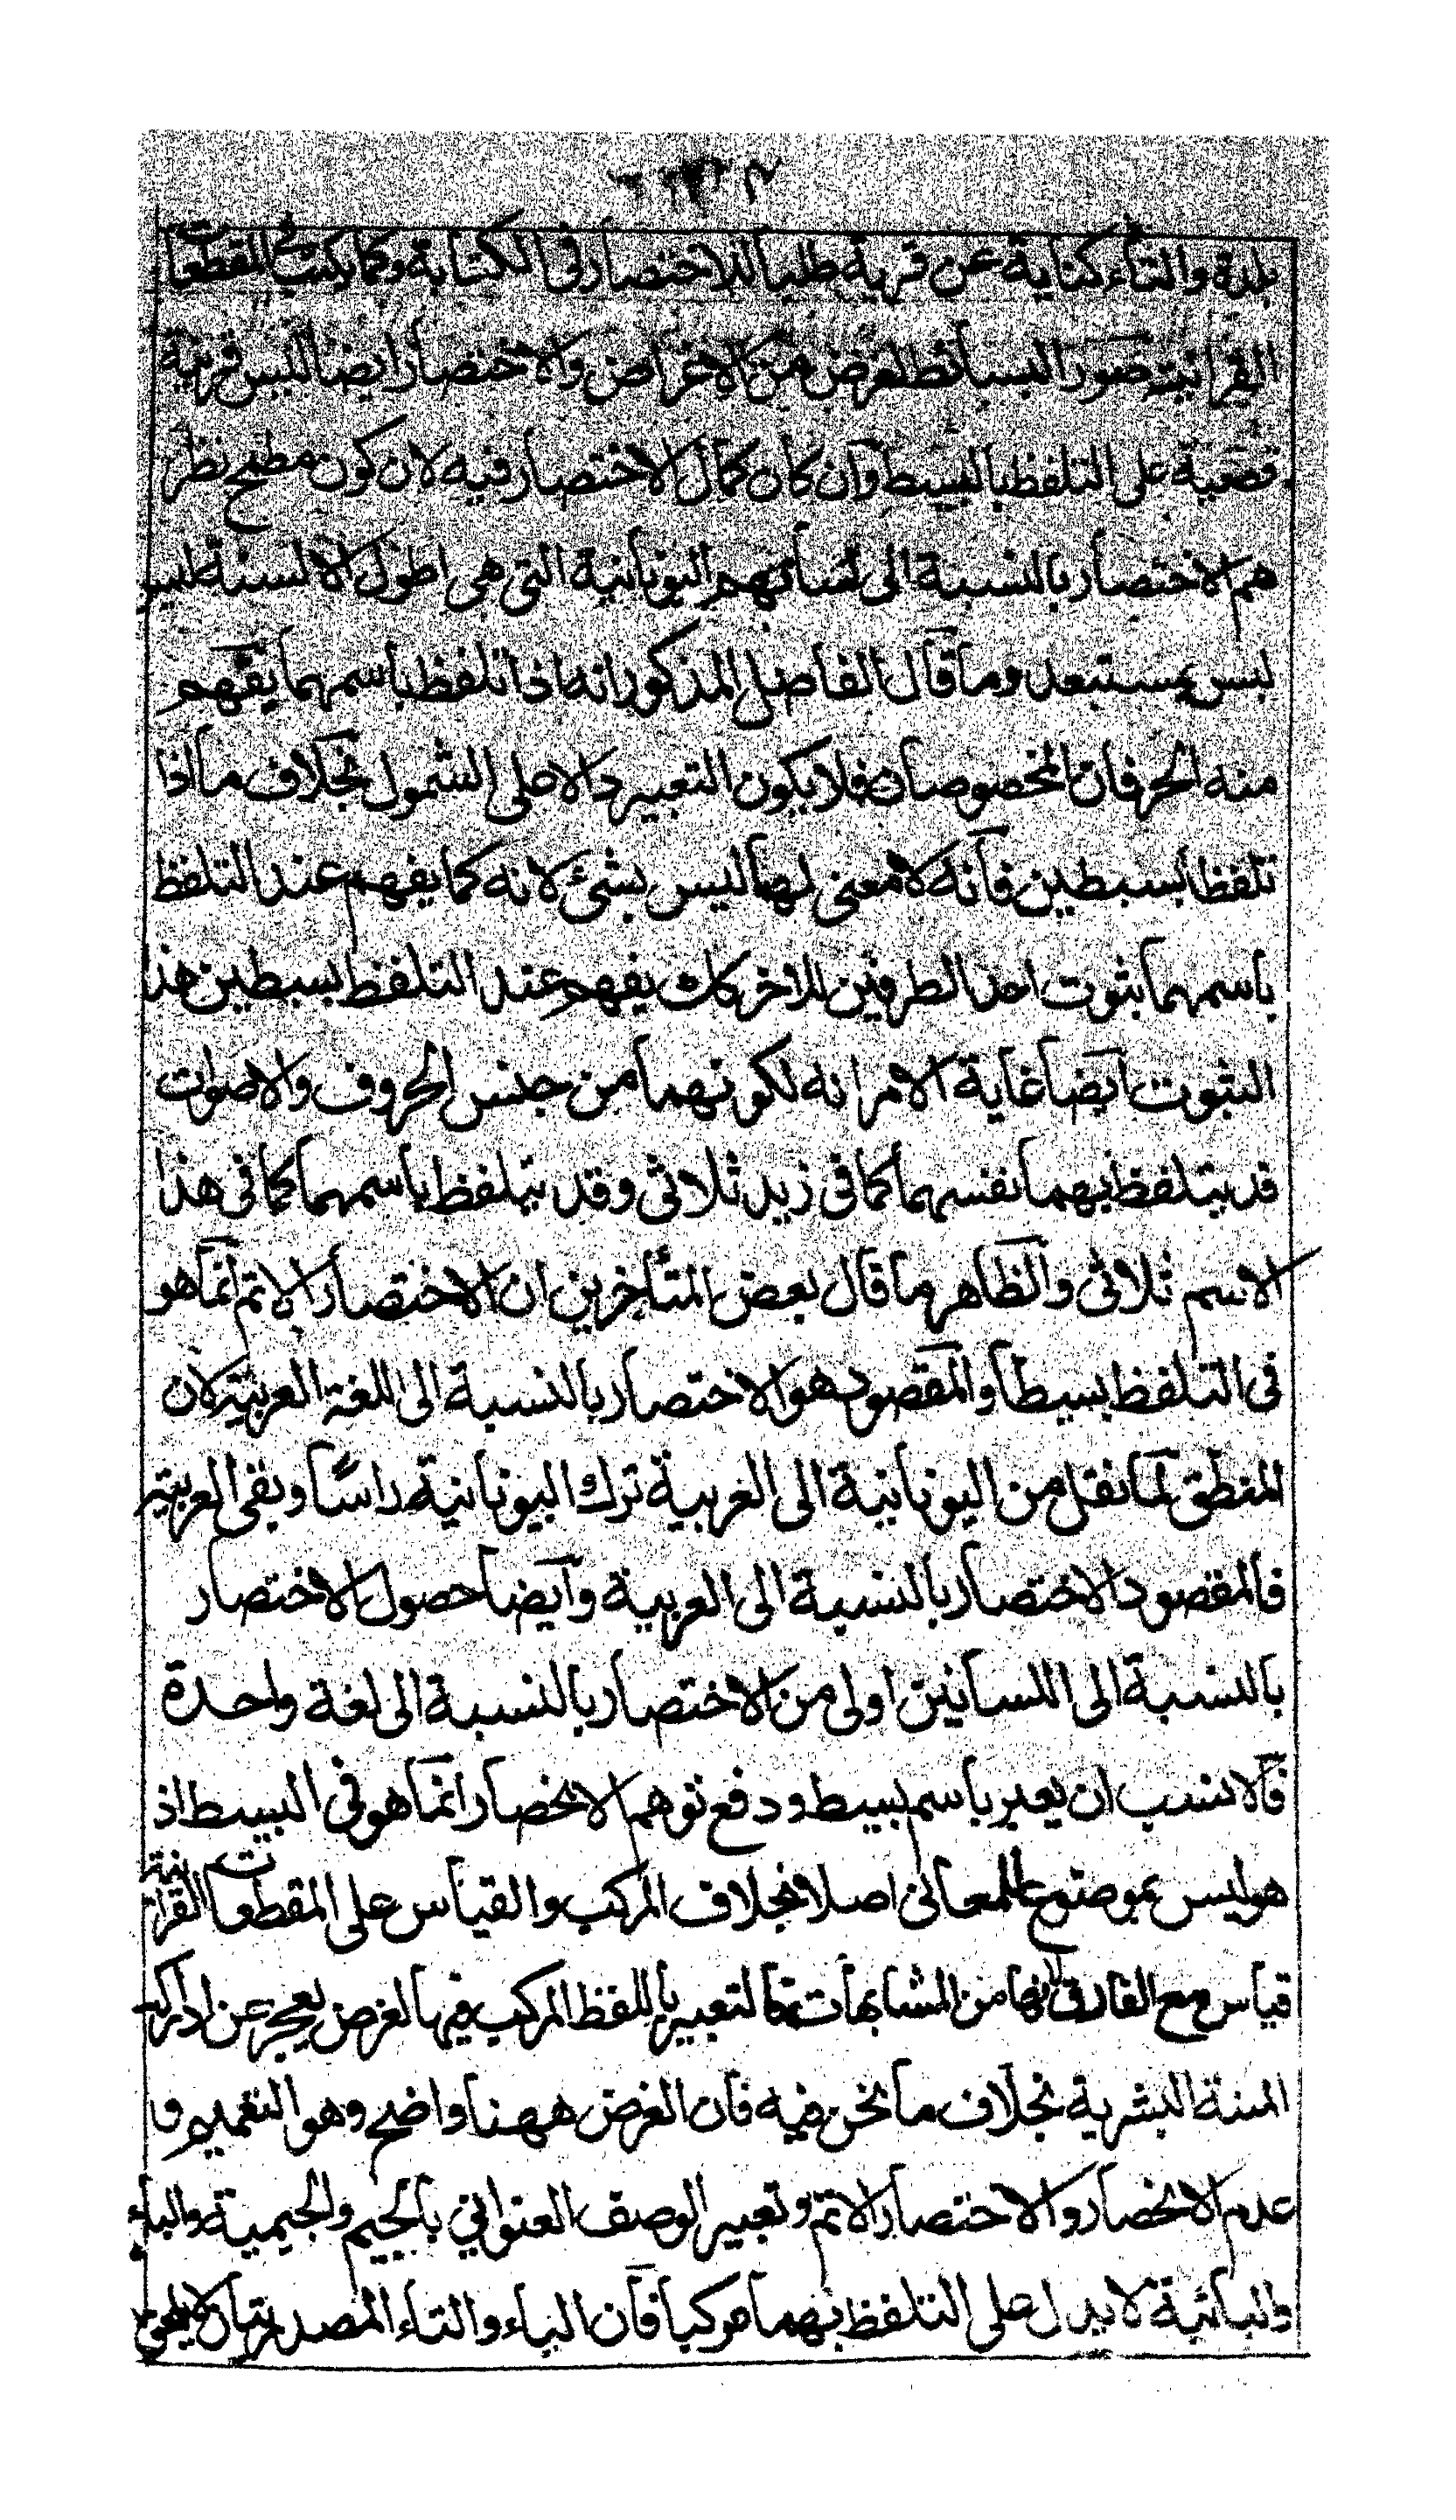 بلدة والتاء كناية عن قرية طلبا للاختصار فى الكتابة وكما يكتب المقطعات
القرانية صور البسائط لغرض من الاغراض والاختصار ايضا ليس قرينة
قطعية على التلفظ بالبسيط وان كان كمال الاختصار فيه لان كون مطمح نظر
هم الاختصار بالنسبة الى لسانهم اليونانية التى هى اطول الالسنة ليس
ليس بمستبعد وما قال الفاضل المذكور انه اذا تلفظ باسمهما يفهم
منه الحرفان المخصوصان فلا يكون التعبير دالا على الشمول بخلاف ما اذا
تلفظا بسيطين فانه لا معنى لهما ليس بشئ لانه كما يفهم عند التلفظ
باسمهما بثبوت احد الطرفين للاخر كك يفهم عند التلفظ بسيطين هذا
الثبوت ايضا غاية الامر انه لكونهما من جنس الحروف والاصوات
قد يتلفظ بهما نفسهما كما فى زيد ثلاثى وقد يتلفظ باسمهما كما فى هذا
الاسم ثلاثى والظاهر ما قال بعض المتأخرين ان الاختصار الاتم انما هو
فى التلفظ بسيطا والمقصود هو الاختصار بالنسبة الى اللغة العربية لان
المنطق لما نقل من اليونانية الى العربية ترك اليونانية راسًا وبقى العربية
فالمقصود الاختصار بالنسبة الى العربية وايضا حصول الاختصار
بالنسبة الى اللسانين اولى من الاختصار بالنسبة الى لغة واحدة
فالانسب ان يعبر باسم بسيط ودفع توهم الانحصار انما هو فى البسيط اذ
هو ليس بموضوع للمعانى اصلا بخلاف المركب والقياس على المقطعات القرانية
قياس مع الفارق لانها من المشابهات كالتعبير باللفظ المركب فيها لغرض يعجز عن ادراكه
المنة البشرية بخلاف ما نحن فيه فان الغرض ههنا واضح وهو التعميم و
عدم الانحصار والاختصار الاتم وتعبير الوصف العنوانى بالجيم والجيمية والباء
والبائية لا يدل على التلفظ بهما مركبا فان الياء والتاء المصدريتان